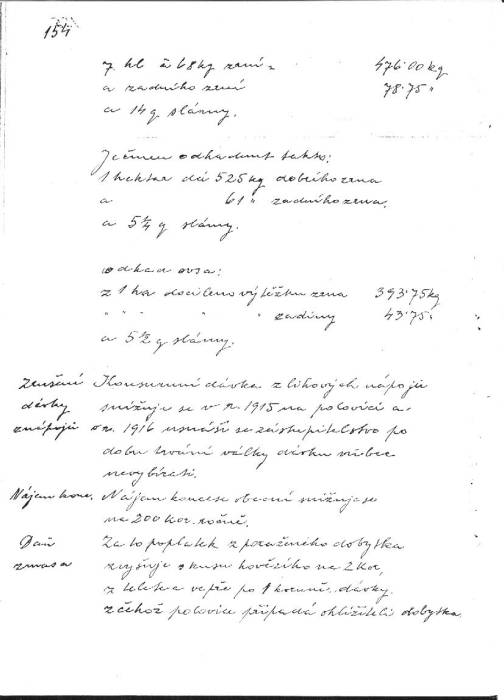 154
7 hl à 68 kg zrní = 476·00 kg
a zadního zrní 78·75 "
a 14 q slámy.
Ječmen odhadnut takto:
1 hektar dá 525 kg dobrého zrna
a 61 " zadního zrna.
a 5 q slámy.
odhad ovsa:
z 1 ha docíleno výtěžku zrna 393·75 kg
" " " " zadiny 43·75 "
a 5 q slámy.
Zrušení Konsumní dávka z lihových nápojů
dávky snižuje se v r. 1915 na polovici a
z nápojů r. 1916 usnáší se zastupitelstvo po
dobu trvání války dávku vůbec
nevybírati.
Nájem konc. Nájem koncese obecní snižuje se
na 200 kor. ročně.
Daň Za to poplatek z poraženého dobytka
z masa zvyšuje z kusu hovězího na 2 kor,
z telete a vepře po 1 koruně dávky.
z čehož polovice připadá ohližiteli dobytka.